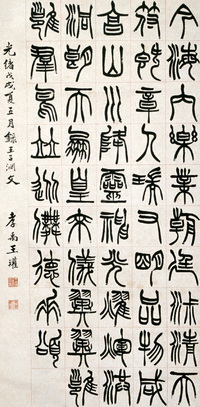 今海內樂業朝廷淑清天
符既章人瑞又明品物咸
亨山川降靈神光耀暉洪
洞朗天鳳皇來儀翼翼雝
雝羣鳥並從舞德垂頌
光緒戊戌夏五月錄王子淵文
孝禹王瓘